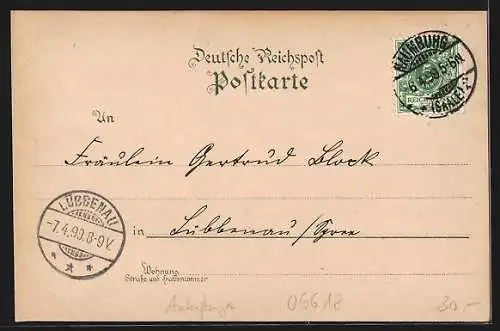 Deutsche Reichspost
Postkarte
NAUMBURG
(SAALE)
An
Fräulein Gertrud Block
LÜBBENAU
-7.4.99.8-9V.
in Lübbenau/Spree
Wohnung
Straße und Hausnummer
06618
30,-